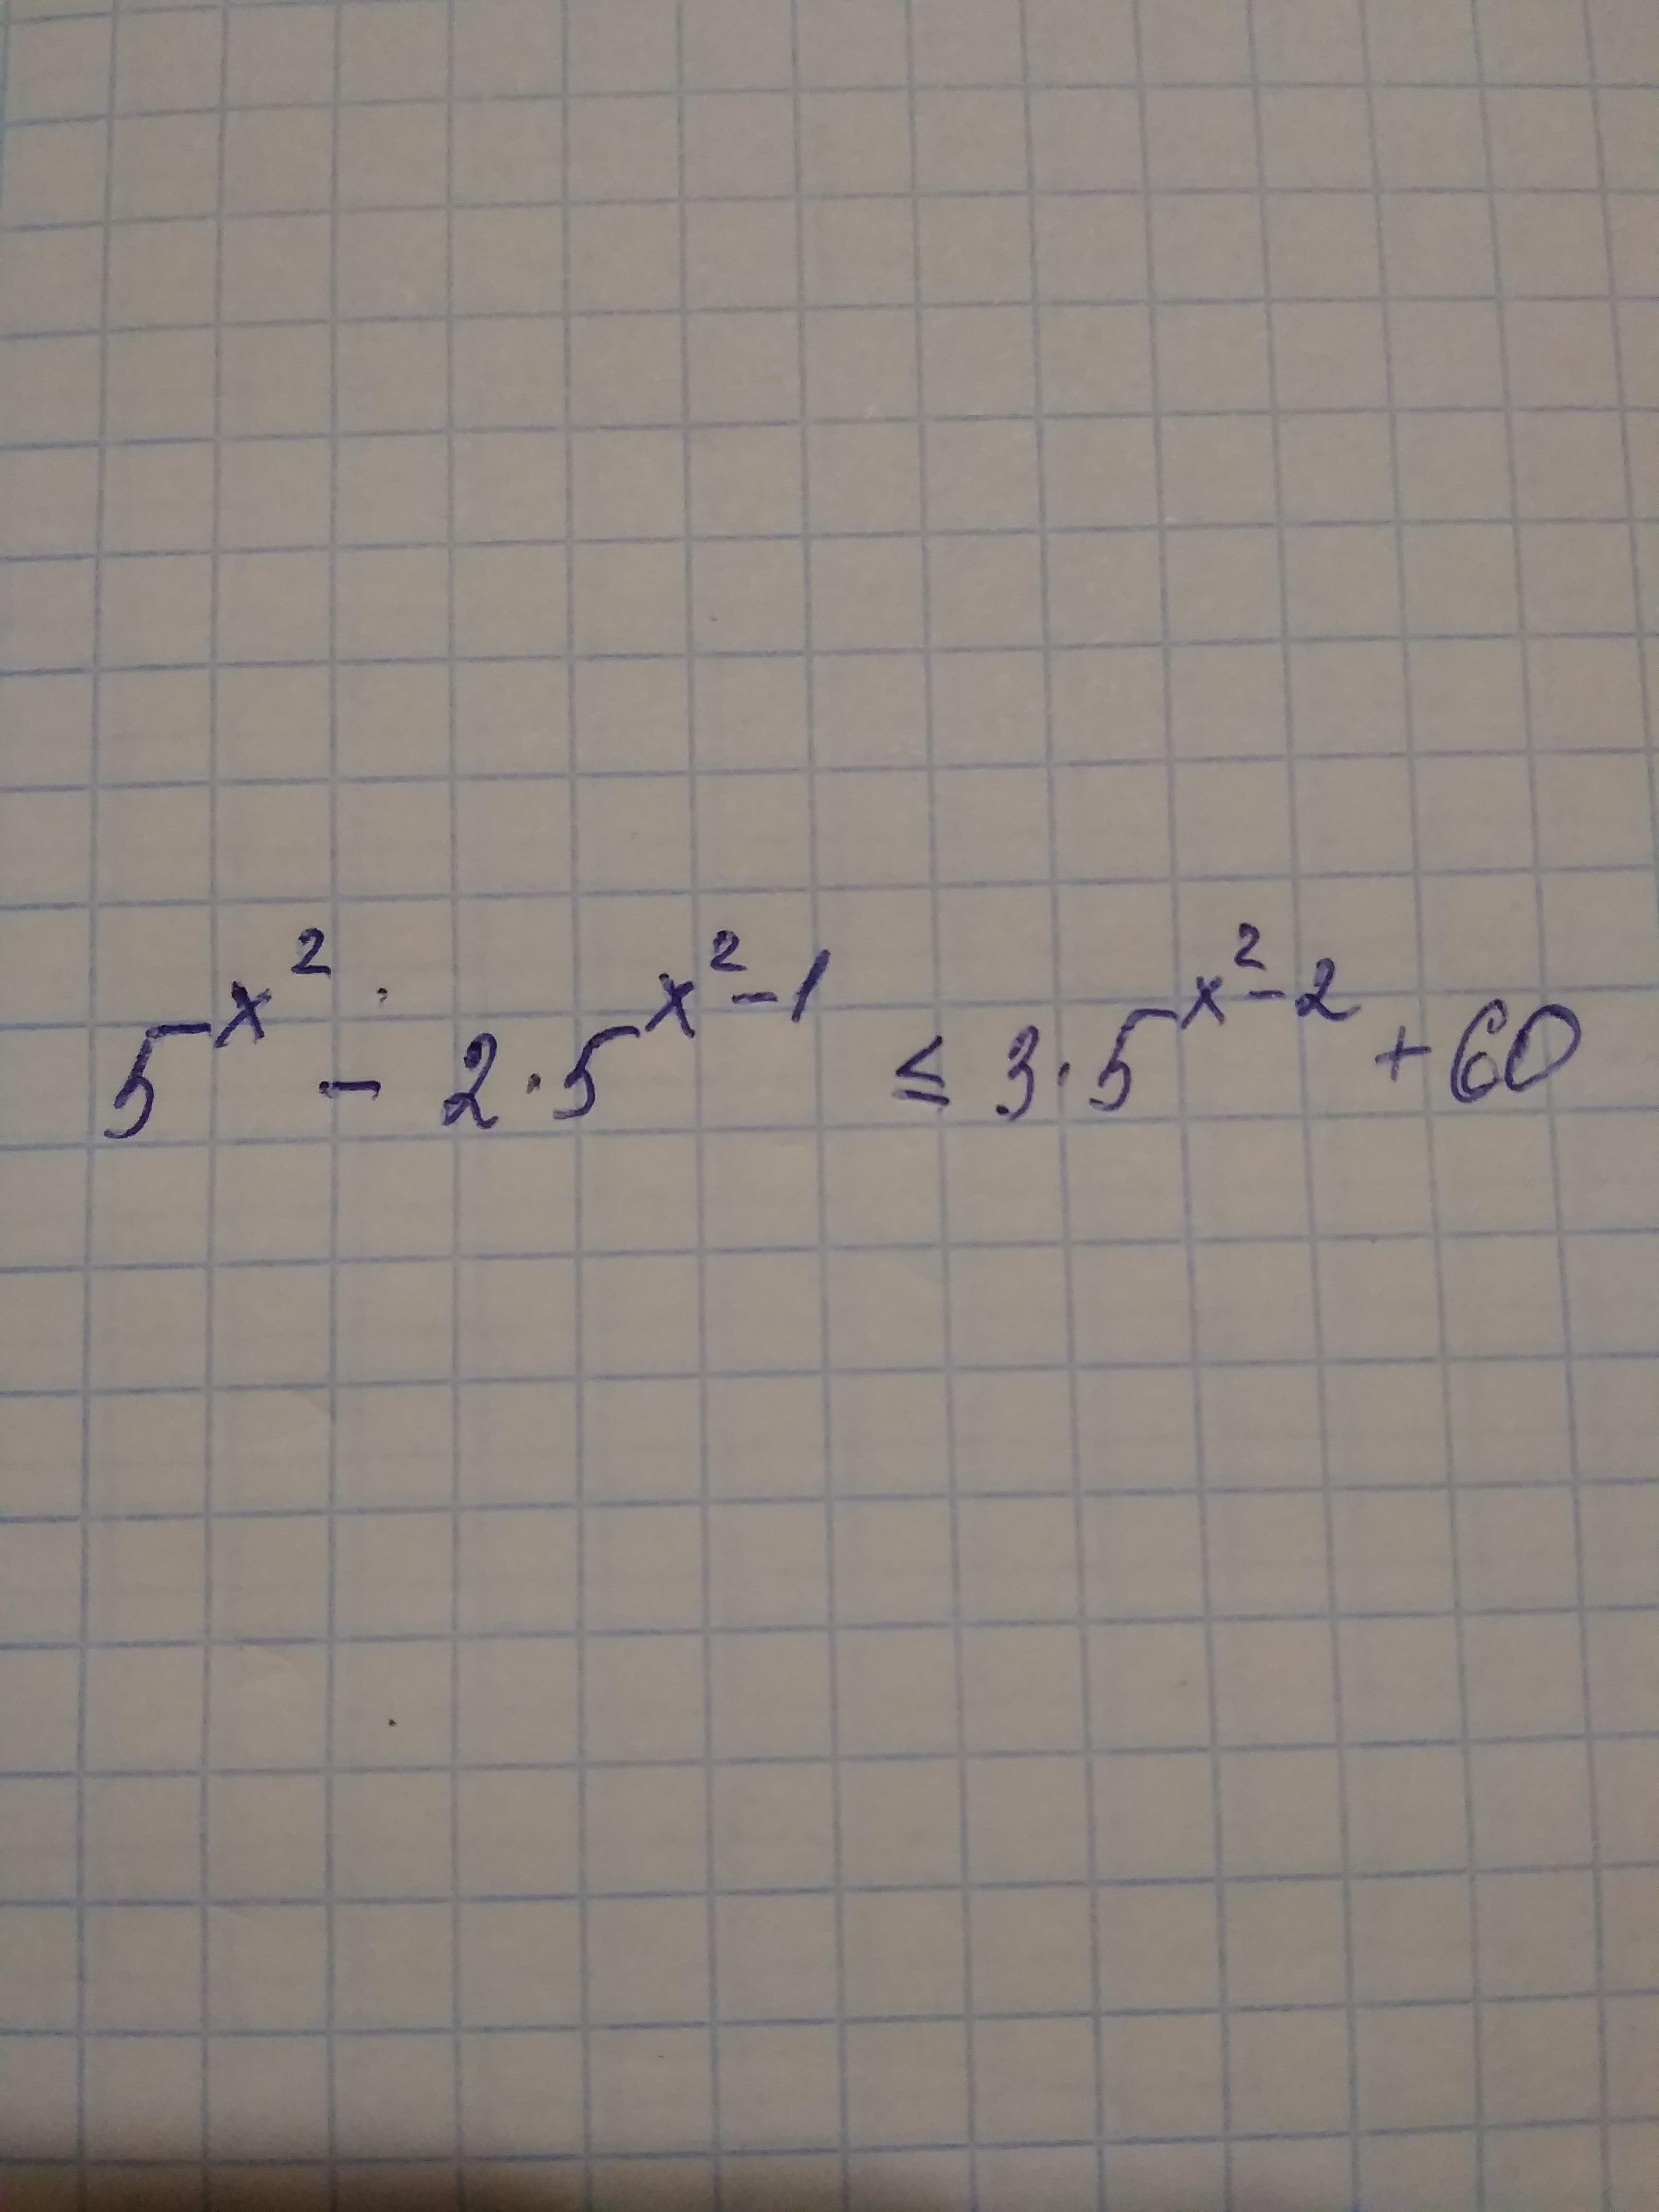 5^{x^2} - 2·5^{x^2-1} ≤ 3·5^{x^2-2} + 60